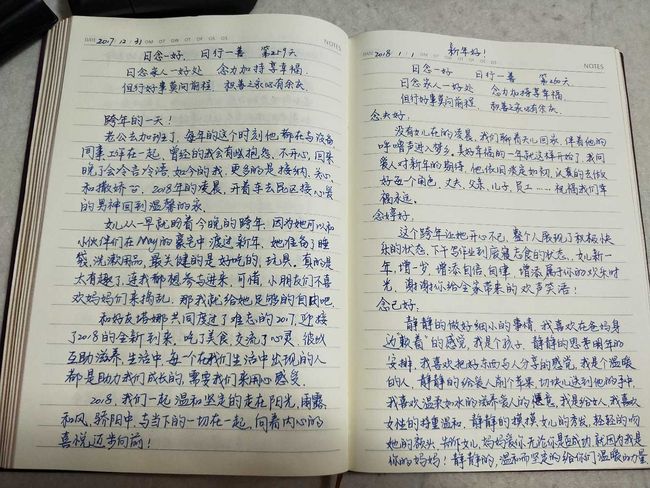 DATE 2017.12.31
NOTES
日念一好、日行一善 第259天
日念家人一好处 念力加持享幸福.
但行好事莫问前程, 积善之家必有余庆.
跨年的一天!
老公去加班了, 每年的这个时刻他都在与设备
同事工作在一起, 曾经的我会有些抱怨、不开心, 回来
晚了会冷言冷语, 如今的我, 更多的是接纳、关心
和撒娇. 2018年的凌晨, 开着车去民区接心爱
的男神回到温馨的家.
女儿从一早就盼着今晚的跨年, 因为她可以和
小伙伴们在May的豪宅中渡过新年, 她准备了睡
袋、洗漱用品, 最关键的是好吃的、玩具. 真的是
太有趣了, 连我都想参与进来, 可惜, 小朋友们不喜
欢妈妈们来捣乱, 那我就给她足够的自由吧
和好友塔娜共同度过了难忘的2017, 迎接
了2018的全新到来, 吃了美食, 交流了心灵, 彼此
互助滋养, 生活中, 每一个在我们生活中出现的人
都是助力我们成长的, 需要我们来用心感受.
2018, 我们一起温和坚定的走在阳光, 雨露,
和风, 骄阳中, 与当下的一切在一起, 向着内心的
喜悦, 迈步向前!
新年好!
DATE 2018.1.1
NOTES
日念一好 日行一善 第260天
日念家人一好处 念力加持享幸福.
但行好事莫问前程, 积善之家必有余庆.
念夫好:
没有女儿在的凌晨, 我们聊着天儿回家, 伴着他的
呼噜声进入梦乡, 美好幸福的一年就这样开始了, 我问
爱人对新年的期待, 他依旧淡定如初, 认真的去做
好每个角色, 丈夫、父亲、儿子、员工…… 祝福我们幸
福永远.
念婷好:
这个跨年让她开心不已, 整个人展现了积极快
乐的状态, 下午写作业到废寝忘食的状态, 女儿新一
年, 增一岁, 增添自信, 自律, 增添属于你的欢乐时
光, 谢谢你给全家带来的欢声笑语!
念己好:
静静的做好细小的事情, 我喜欢在爸妈身
边"耍着"的感觉, 我是个孩子, 静静的思考周年的
安排, 我喜欢把好东西与人分享的感觉, 我是个温暖
的人, 静静的给爱人削个苹果, 切块儿送到他的手中,
我喜欢温柔如水的滋养爱人的惬意, 我是给女人, 我喜欢
女性的特量温和, 静静的摸摸女儿的秀发, 轻轻的吻
她的额头, 告诉女儿, 妈妈爱你, 无论你是否成功, 就因为我是
你的妈妈! 静静的, 温和而坚定的给你们温暖的力量